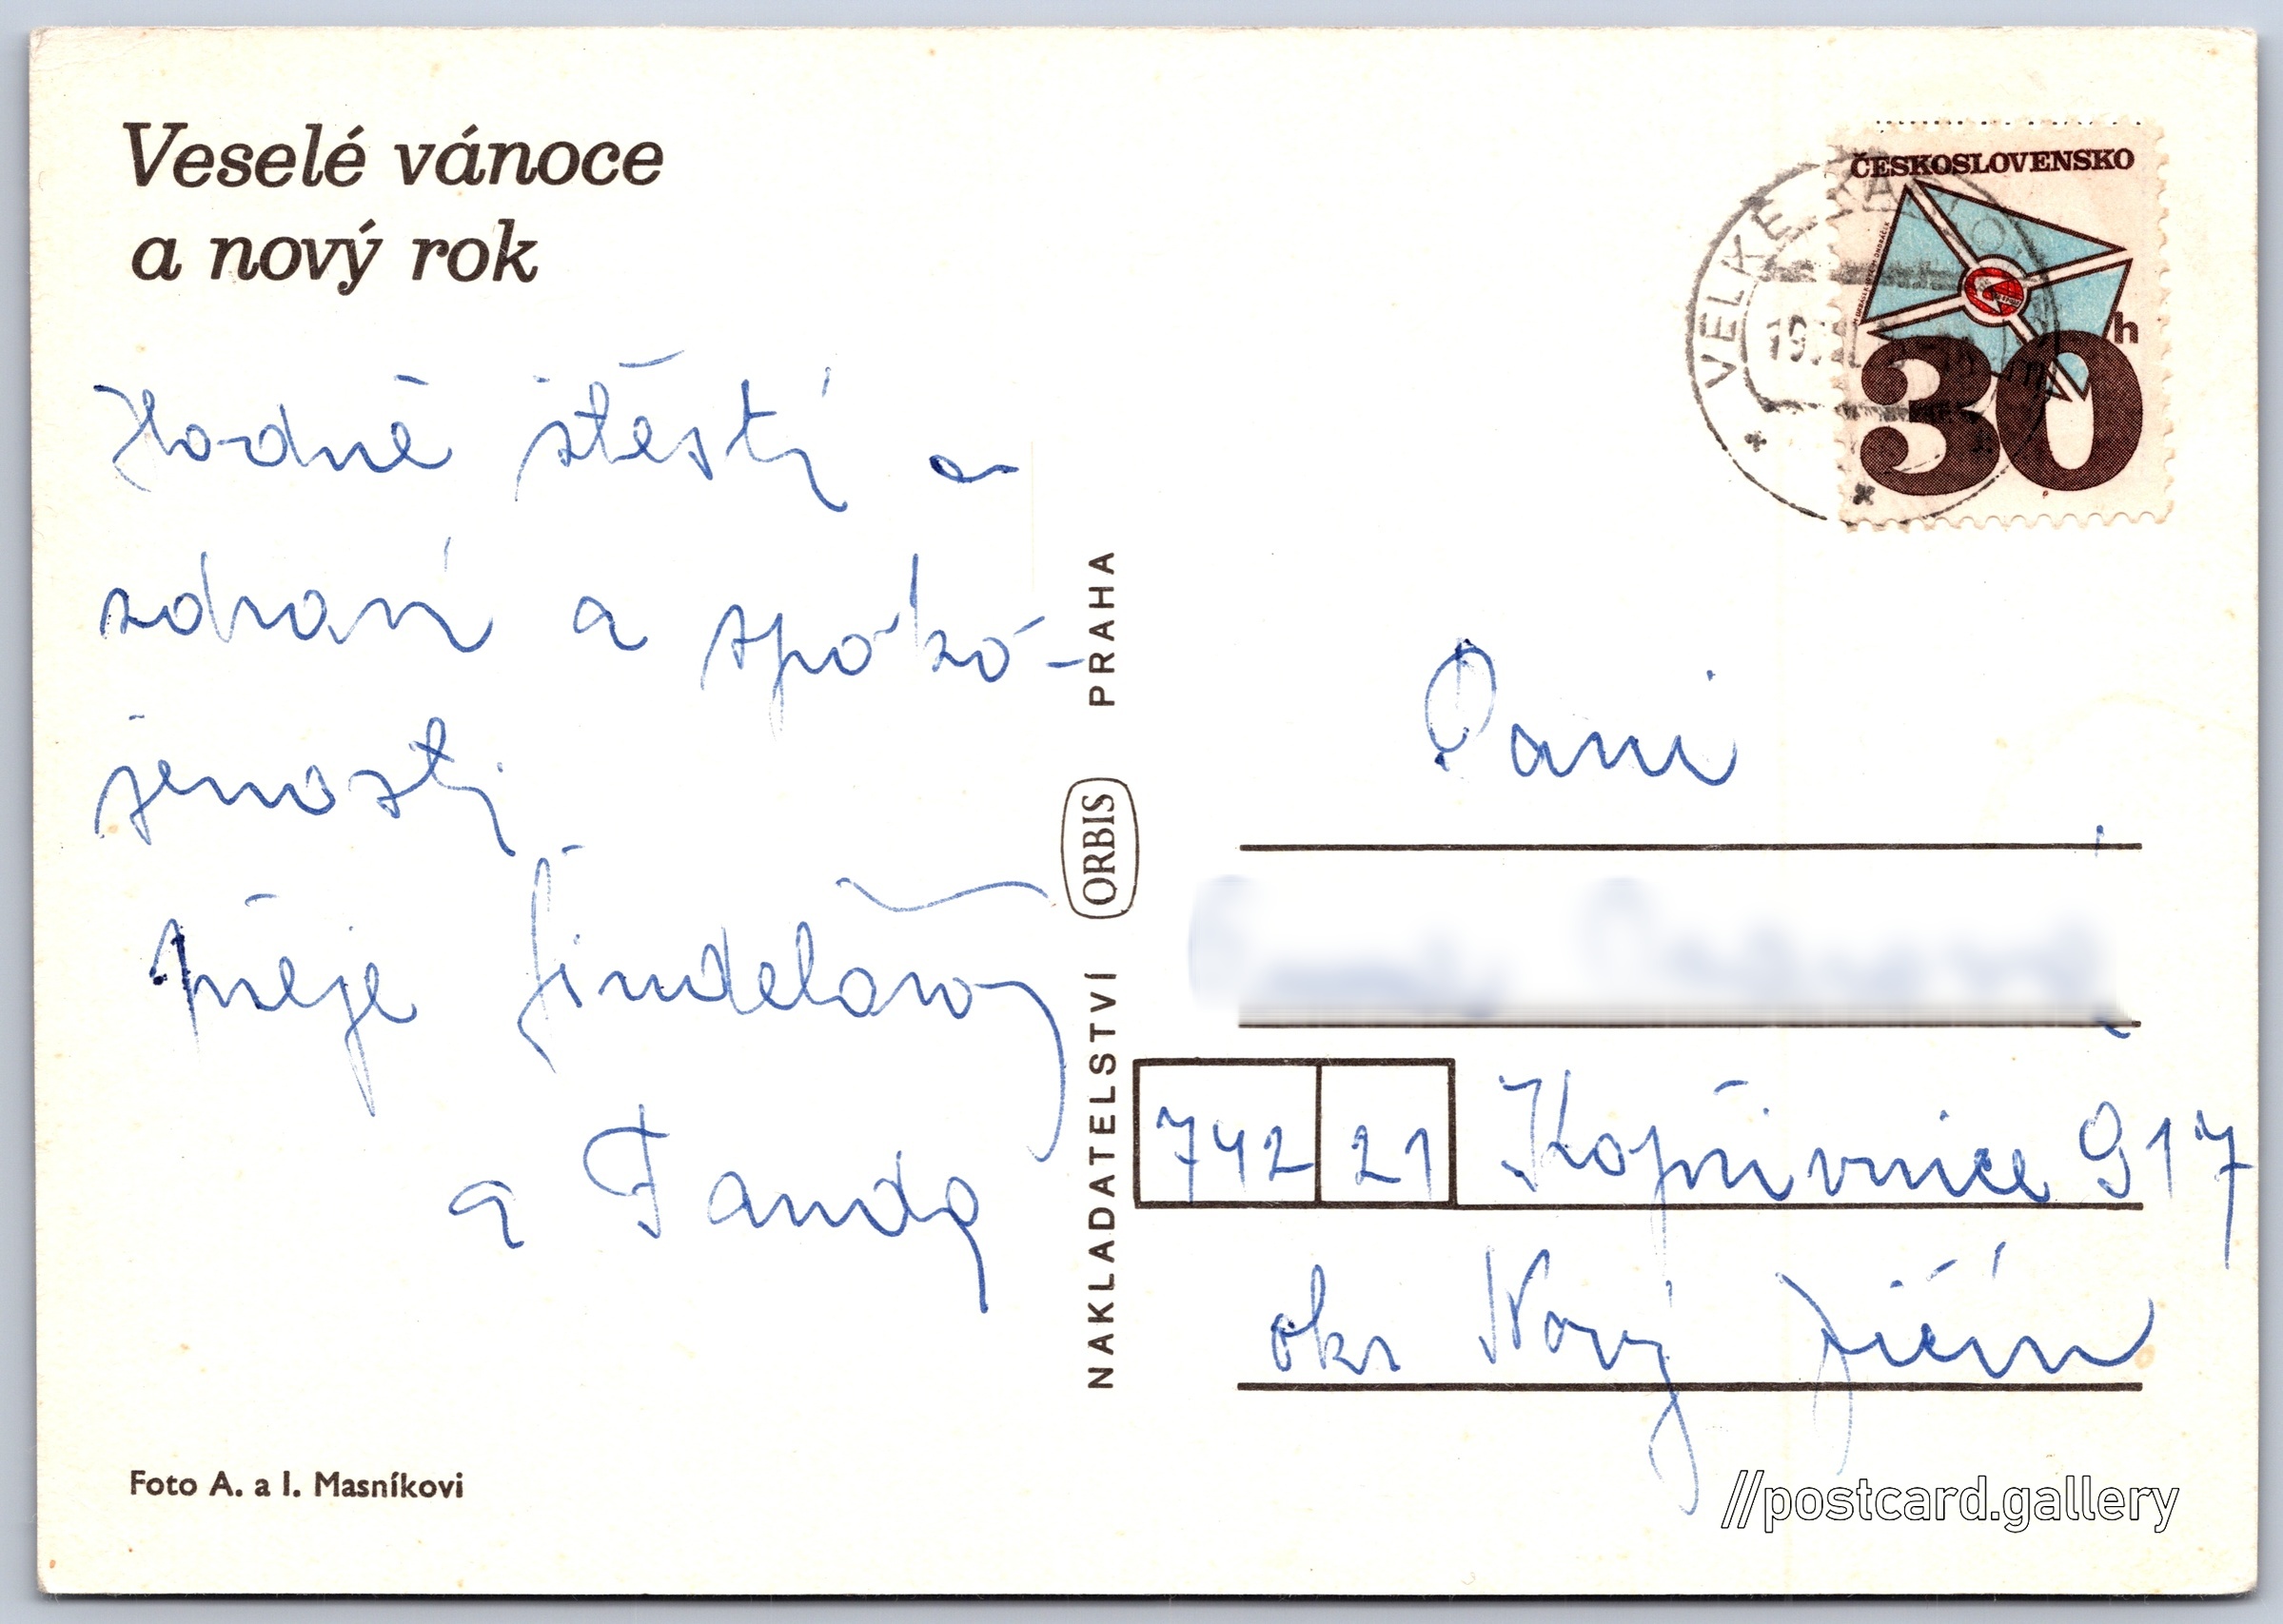 Veselé vánoce
a nový rok
Hodně štěstí a
zdraví a spoko-
jenosti
přeje Šindelářovi
a Fanda
Foto A. a I. Masníkovi
NAKLADATELSTVÍ ORBIS PRAHA
ČESKOSLOVENSKO
30h
VELKÉ
19
Paní
742 21 Kopřivnice 917
okr Nový Jičín
//postcard.gallery